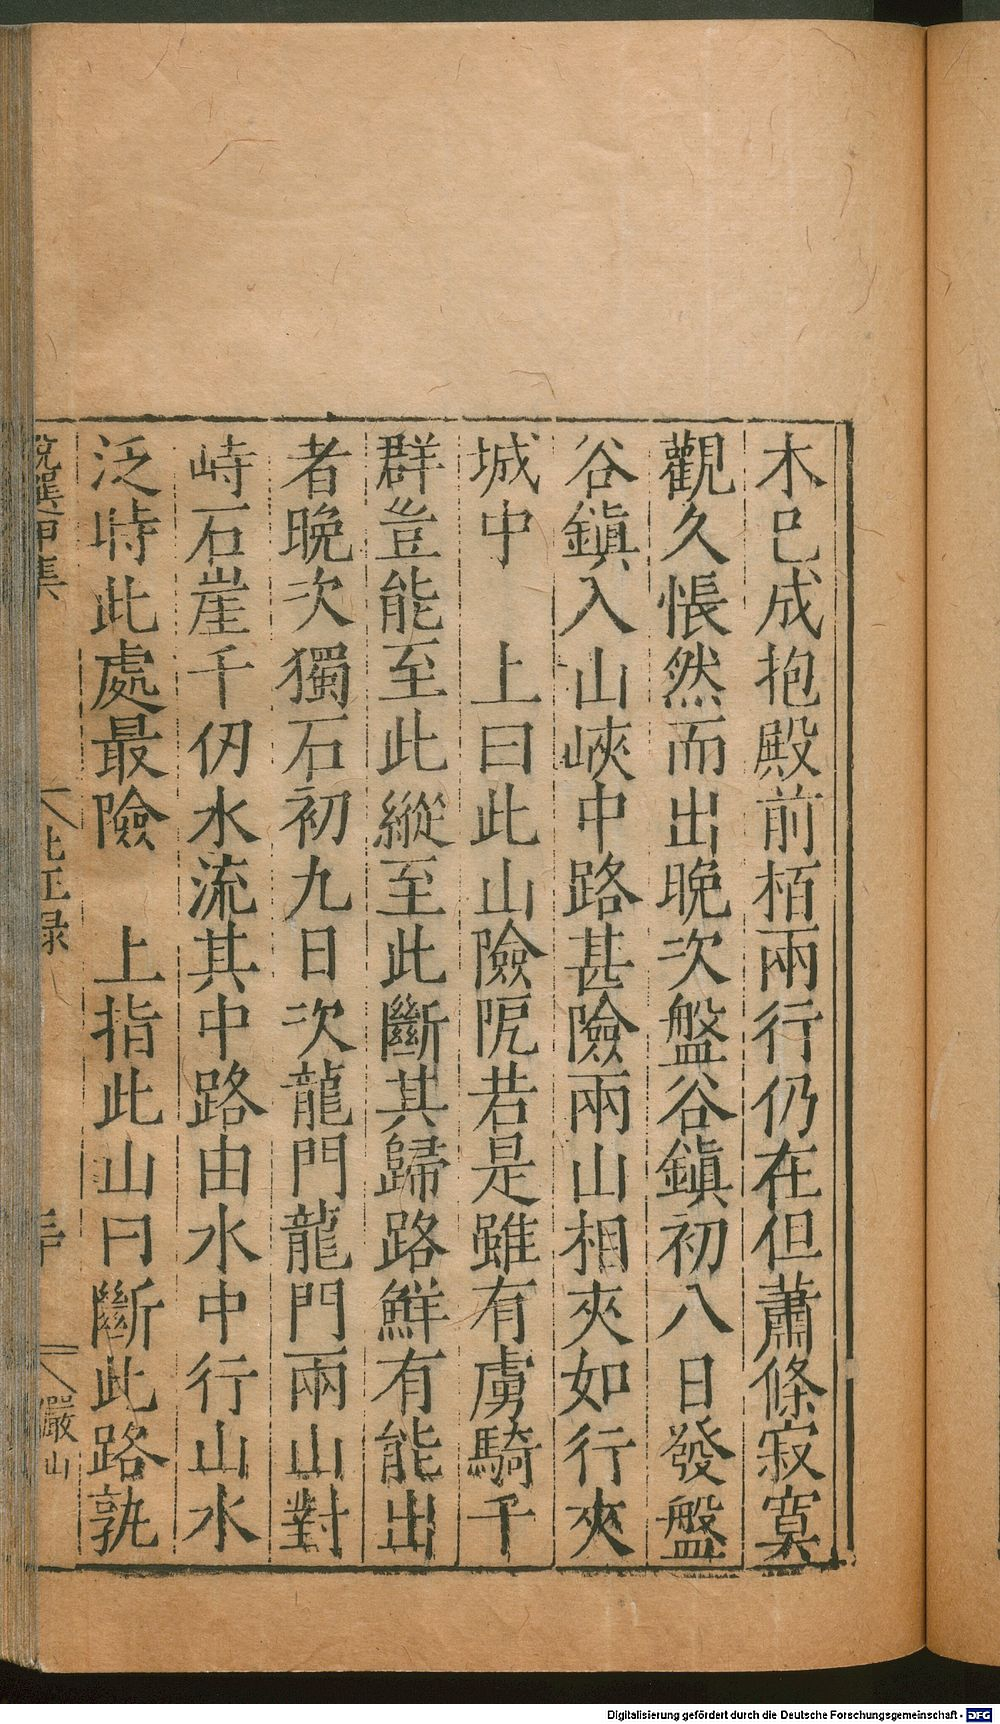 木已成抱殿前栢兩行仍在但蕭條寂寞
觀久悵然而出晚次盤谷鎮初八日發盤
谷鎮入山峽中路甚險兩山相夾如行夾
城中　上曰此山險阨若是雖有虜騎千
群豈能至此縱至此斷其歸路鮮有能出
者晚次獨石初九日次龍門龍門兩山對
峙石崖千仞水流其中路由水中行山水
泛時此處最險　上指此山曰斷此路孰
說選甲集
北征録
嚴山
Digitalisierung gefördert durch die Deutsche Forschungsgemeinschaft - DFG